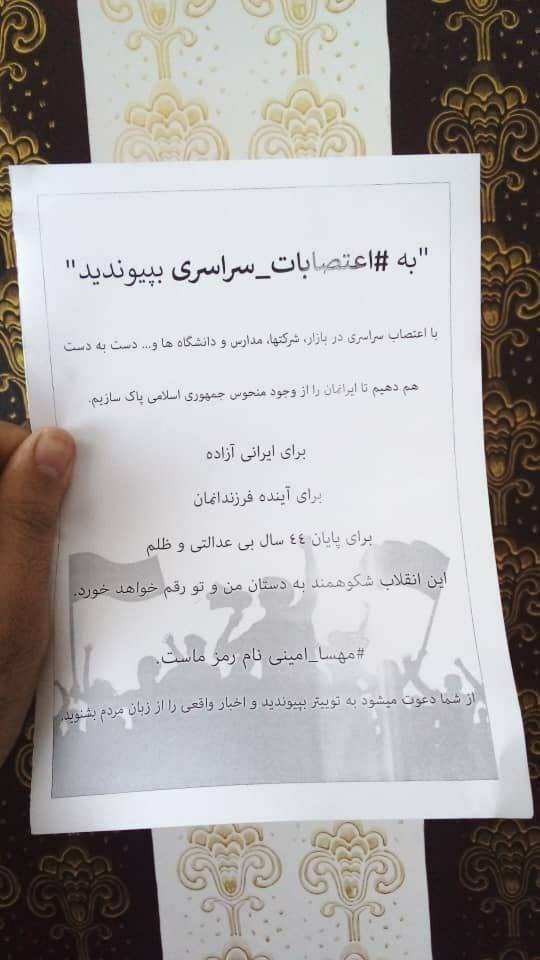 "به #اعتصابات_سراسری بپیوندید"
با اعتصاب سراسری در بازار، شرکتها، مدارس و دانشگاه ها و... دست به دست
هم دهیم تا ایرانمان را از وجود منحوس جمهوری اسلامی پاک سازیم.
برای ایرانی آزاده
برای آینده فرزندانمان
برای پایان ٤٤ سال بی عدالتی و ظلم
این انقلاب شکوهمند به دستان من و تو رقم خواهد خورد.
#مهسا_امینی نام رمز ماست.
از شما دعوت میشود به توییتر بپیوندید و اخبار واقعی را از زبان مردم بشنوید.